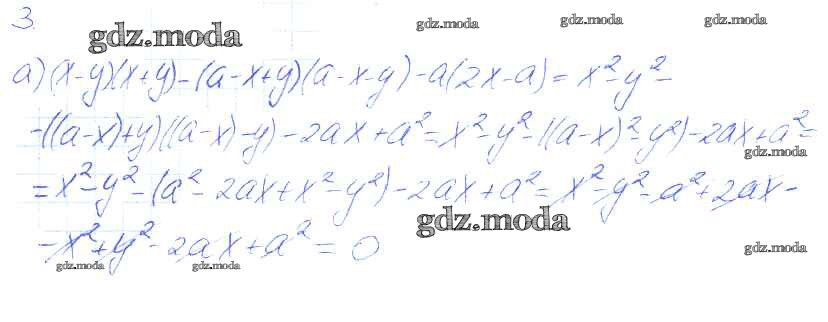 3.
gdz.moda gdz.moda gdz.moda gdz.moda
а) (x-y)(x+y)-(a-x+y)(a-x-y)-a(2x-a)= x²-y²-
-((a-x)+y)((a-x)-y)-2ax+a²=x²-y²-((a-x)²-y²)-2ax+a²=
gdz.moda
=x²-y²-(a²-2ax+x²-y²)-2ax+a²=x²-y²-a²+2ax-
gdz.moda
-x²+y²-2ax+a²=0
gdz.moda gdz.moda gdz.moda